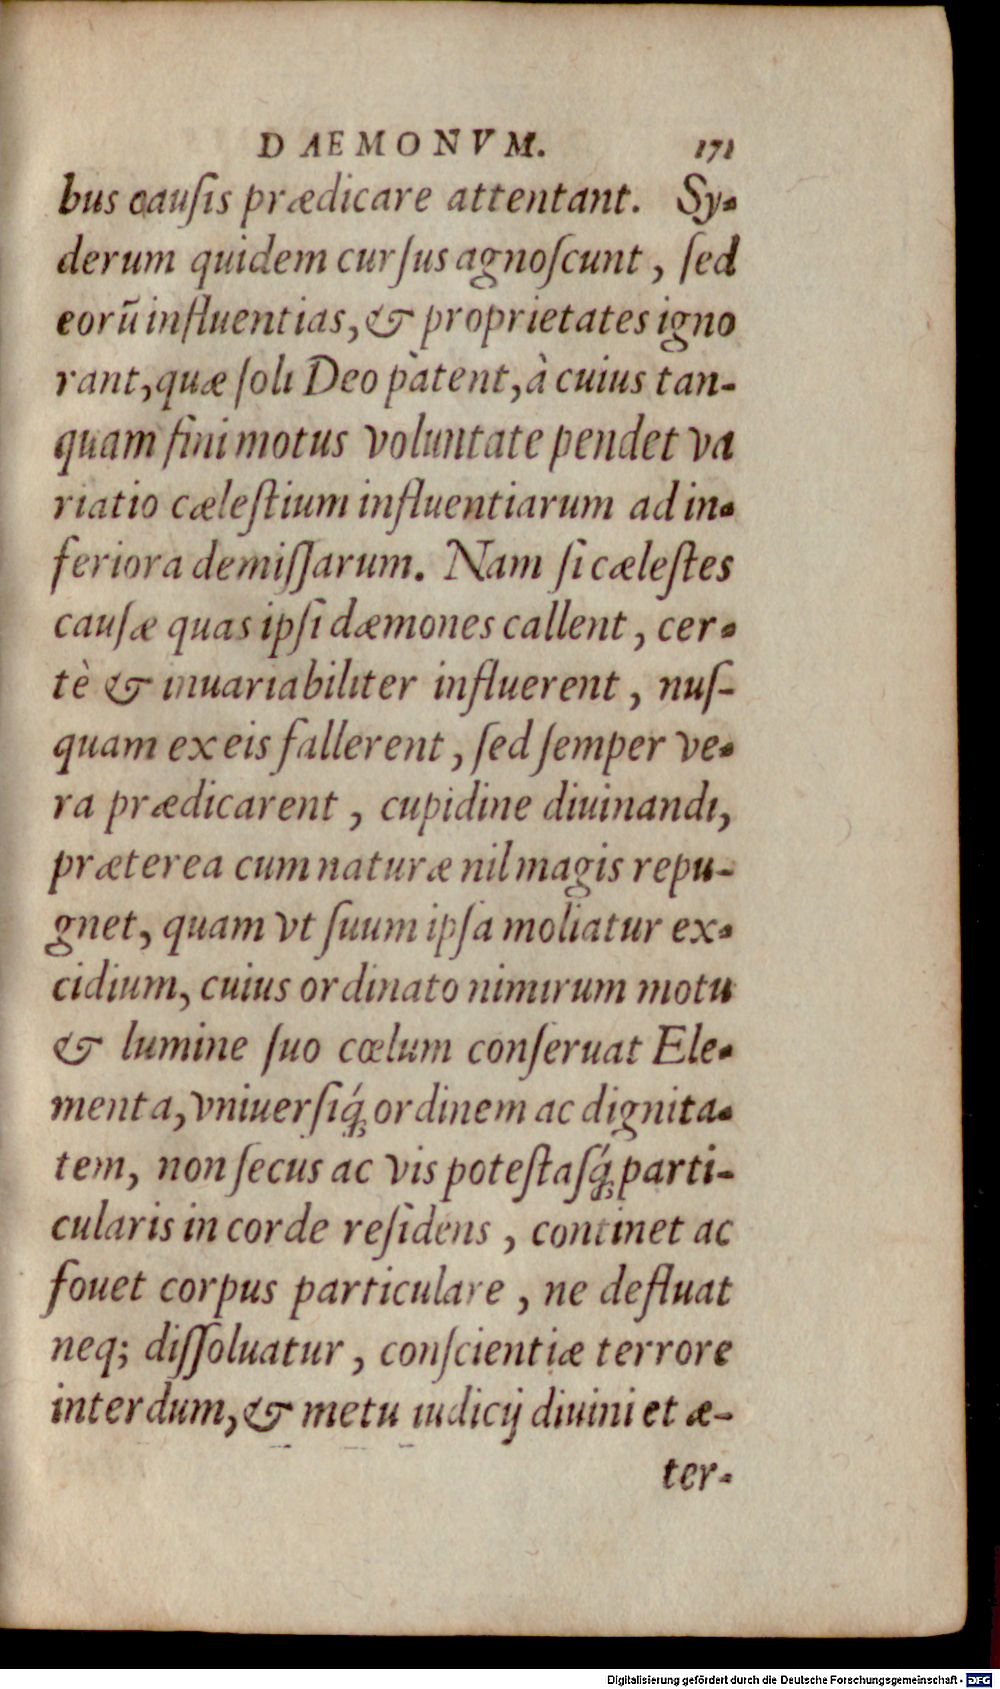 DAEMONVM. 171
bus causis prædicare attentant. Sy-
derum quidem cursus agnoscunt, sed
eorū influentias, & proprietates igno
rant, quæ soli Deo patent, à cuius tan-
quam fini motus voluntate pendet va
riatio cælestium influentiarum ad in-
feriora demissarum. Nam si cælestes
causæ quas ipsi dæmones callent, cer-
tè & inuariabiliter influerent, nus-
quam ex eis fallerent, sed semper ve-
ra prædicarent, cupidine diuinandi,
præterea cum naturæ nil magis repu-
gnet, quam vt suum ipsa moliatur ex-
cidium, cuius ordinato nimirum motu
& lumine suo cœlum conseruat Ele-
menta, vniuersiq́; ordinem ac dignita-
tem, non secus ac vis potestasq́; parti-
cularis in corde residens, continet ac
fouet corpus particulare, ne defluat
neq; dissoluatur, conscientiæ terrore
interdum, & metu iudicij diuini et æ-
ter-
Digitalisierung gefördert durch die Deutsche Forschungsgemeinschaft - DFG